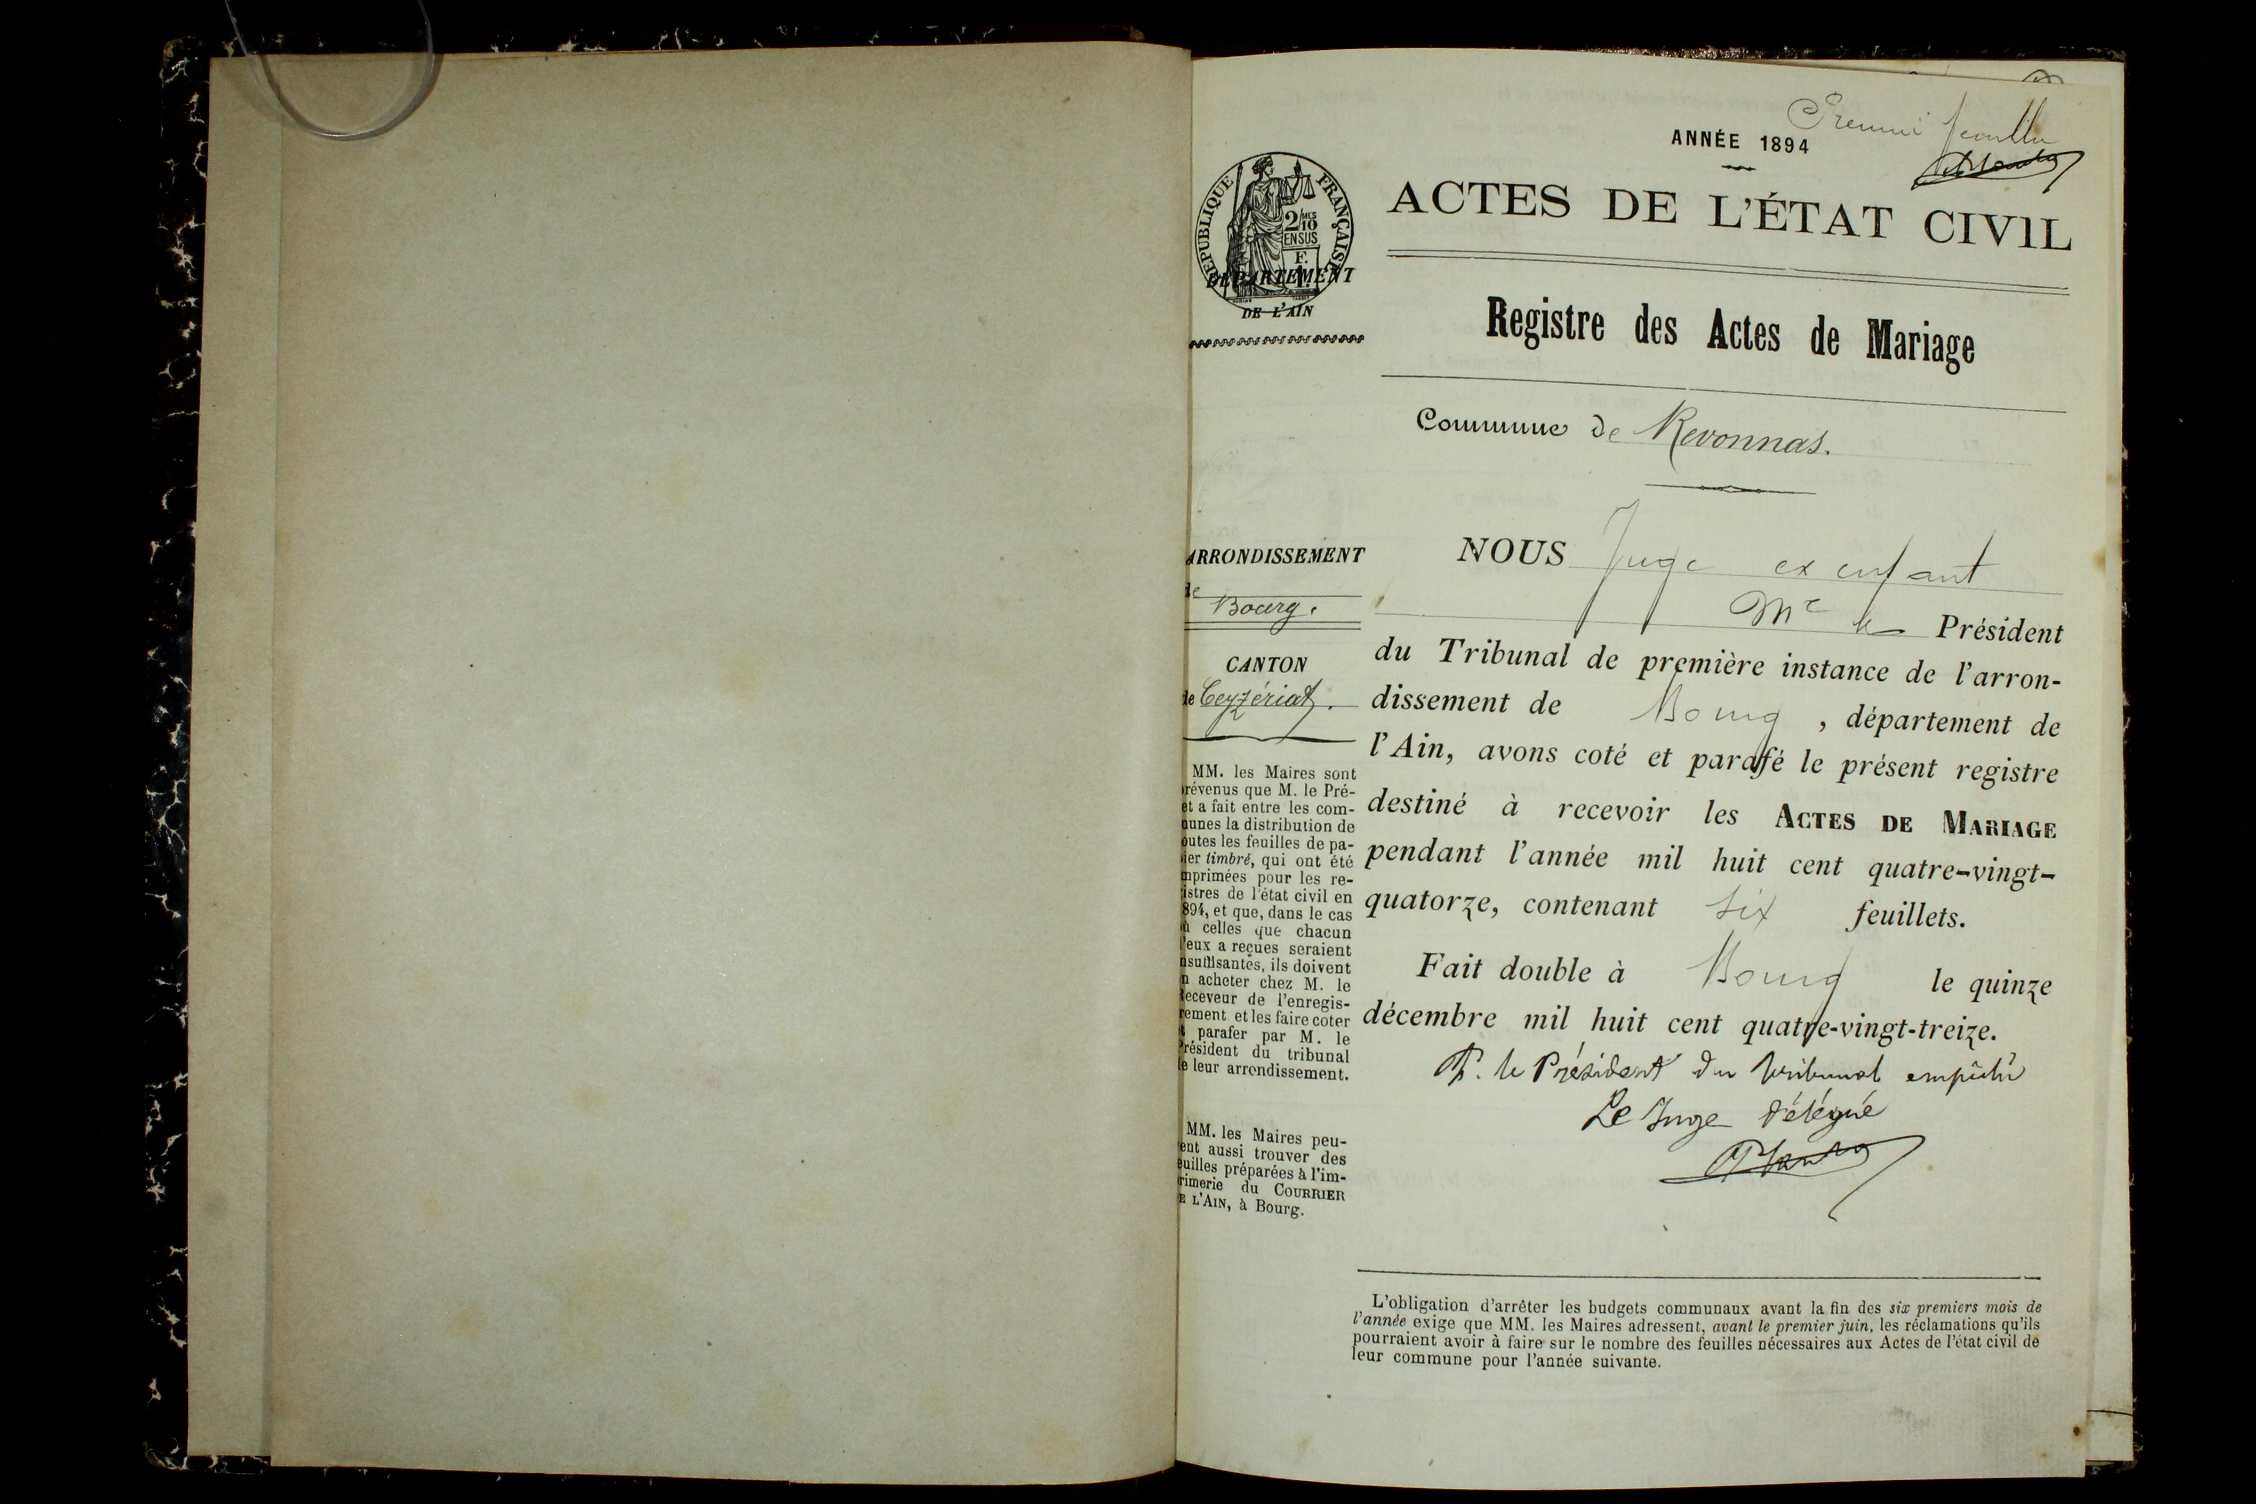 Premier feuillet
ANNÉE 1894
ACTES DE L'ÉTAT CIVIL
RÉPUBLIQUE FRANÇAISE
2/10 MES
EN SUS
F.
1.
DÉPARTEMENT
DE L'AIN
Registre des Actes de Mariage
Commune de Revonnas.
ARRONDISSEMENT
de
Bourg.
CANTON
de Ceyzériat.
MM. les Maires sont
révenus que M. le Pré-
et a fait entre les com-
unes la distribution de
outes les feuilles de pa-
ier timbré, qui ont été
mprimées pour les re-
istres de l'état civil en
894, et que, dans le cas
ù celles que chacun
'eux a reçues seraient
nsuffisantes, ils doivent
n acheter chez M. le
Receveur de l'enregis-
rement et les faire coter
t parafer par M. le
Président du tribunal
de leur arrondissement.
MM. les Maires peu-
ent aussi trouver des
euilles préparées à l'im-
rimerie du COURRIER
E L'AIN, à Bourg.
NOUS Juge ex enfant
Mr le Président
du Tribunal de première instance de l'arron-
dissement de Bourg, département de
l'Ain, avons coté et parafé le présent registre
destiné à recevoir les ACTES DE MARIAGE
pendant l'année mil huit cent quatre-vingt-
quatorze, contenant six feuillets.
Fait double à Bourg le quinze
décembre mil huit cent quatre-vingt-treize.
P. le Président du Tribunal empêché
Le Juge délégué
L'obligation d'arrêter les budgets communaux avant la fin des six premiers mois de
l'année exige que MM. les Maires adressent, avant le premier juin, les réclamations qu'ils
pourraient avoir à faire sur le nombre des feuilles nécessaires aux Actes de l'état civil de
leur commune pour l'année suivante.